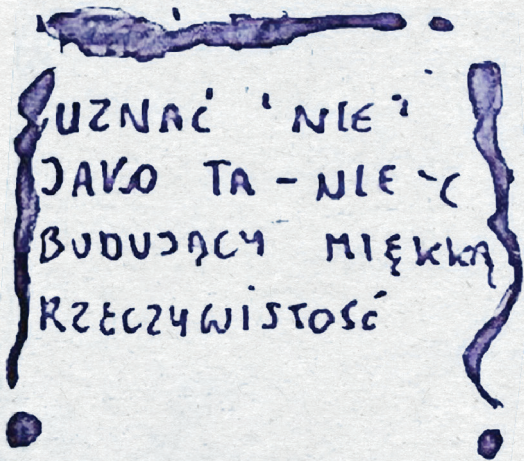 UZNAĆ 'NIE'
JAKO TA-NIE-C
BUDUJĄCY MIĘKKĄ
RZECZYWISTOŚĆ